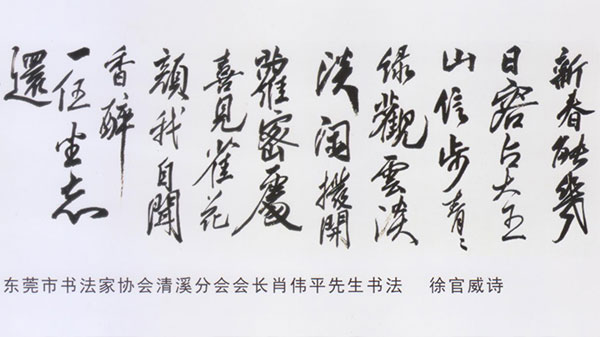 新春能幾
日客占大王
山信步青〻
绿觀雲淡
淡閒撥開
密處
喜見雀花
顏我自聞
香醉
一任坐忘
還
东莞市书法家协会清溪分会会长肖伟平先生书法 徐官威诗